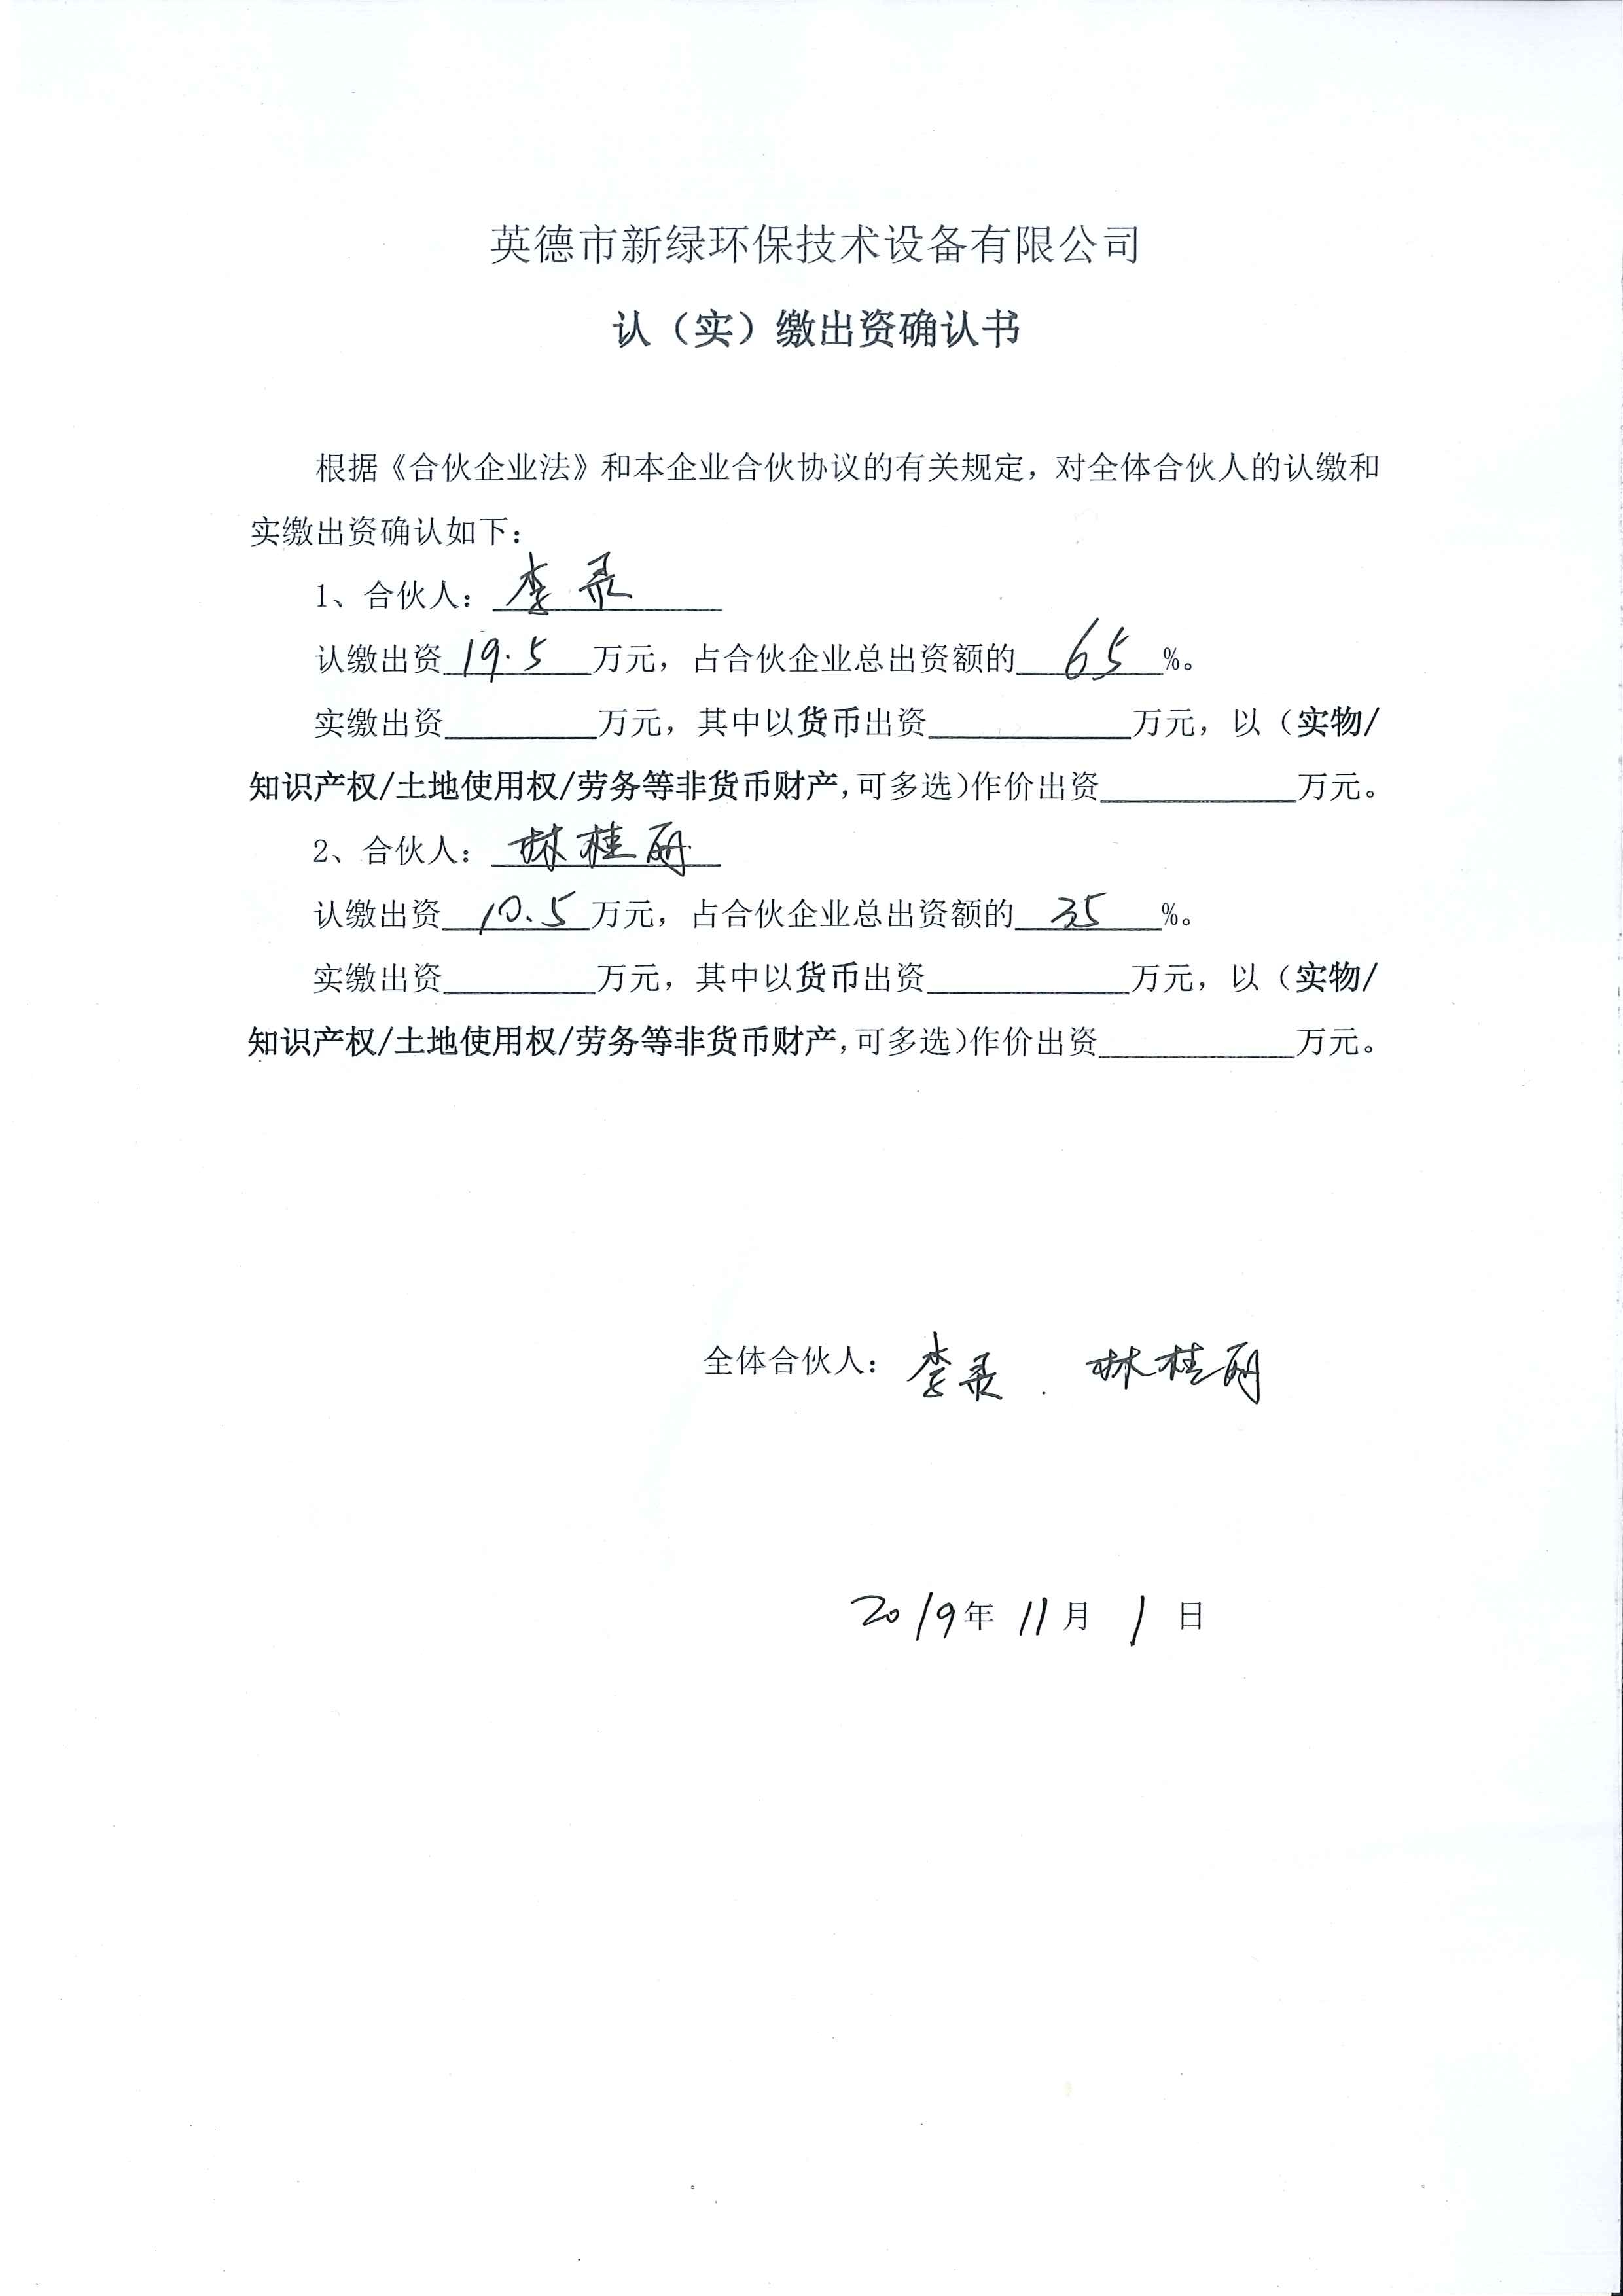 英德市新绿环保技术设备有限公司
认（实）缴出资确认书
根据《合伙企业法》和本企业合伙协议的有关规定，对全体合伙人的认缴和
实缴出资确认如下：
1、合伙人：李录
认缴出资19.5万元，占合伙企业总出资额的65%。
实缴出资______万元，其中以货币出资______万元，以（实物/
知识产权/土地使用权/劳务等非货币财产，可多选）作价出资______万元。
2、合伙人：林桂丽
认缴出资10.5万元，占合伙企业总出资额的35%。
实缴出资______万元，其中以货币出资______万元，以（实物/
知识产权/土地使用权/劳务等非货币财产，可多选）作价出资______万元。
全体合伙人：李录．林桂丽
2019年11月1日